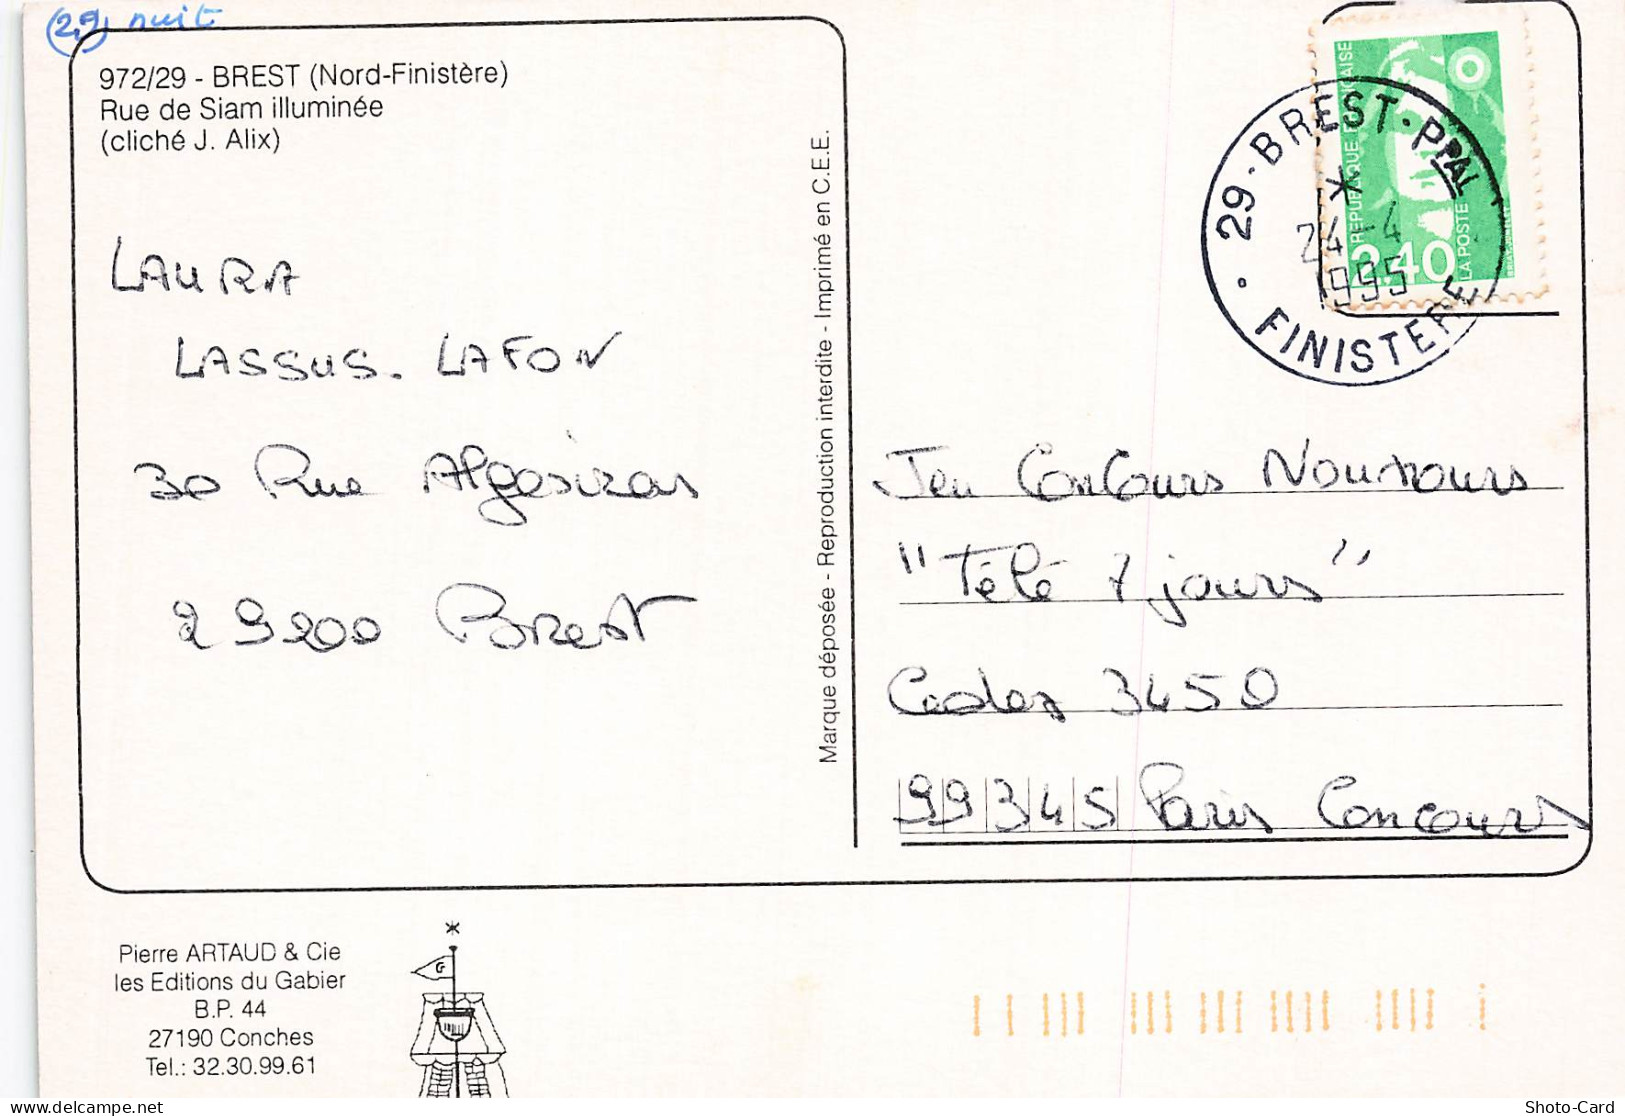 (29) nuit
972/29 - BREST (Nord-Finistère)
Rue de Siam illuminée
(cliché J. Alix)
LAURA
LASSUS-LAFON
30 Rue Algesiras
29200 Brest
Marque déposée - Reproduction interdite - Imprimé en C.E.E.
REPUBLIQUE FRANÇAISE
2,40
LA POSTE
29 - BREST - PPAL
24-4
1995
FINISTERE
Jeu Concours Nounours
"Télé 7 jours"
Cedex 3450
99345 Paris Concours
Pierre ARTAUD & Cie
les Editions du Gabier
B.P. 44
27190 Conches
Tel.: 32.30.99.61
G
Shoto-Card